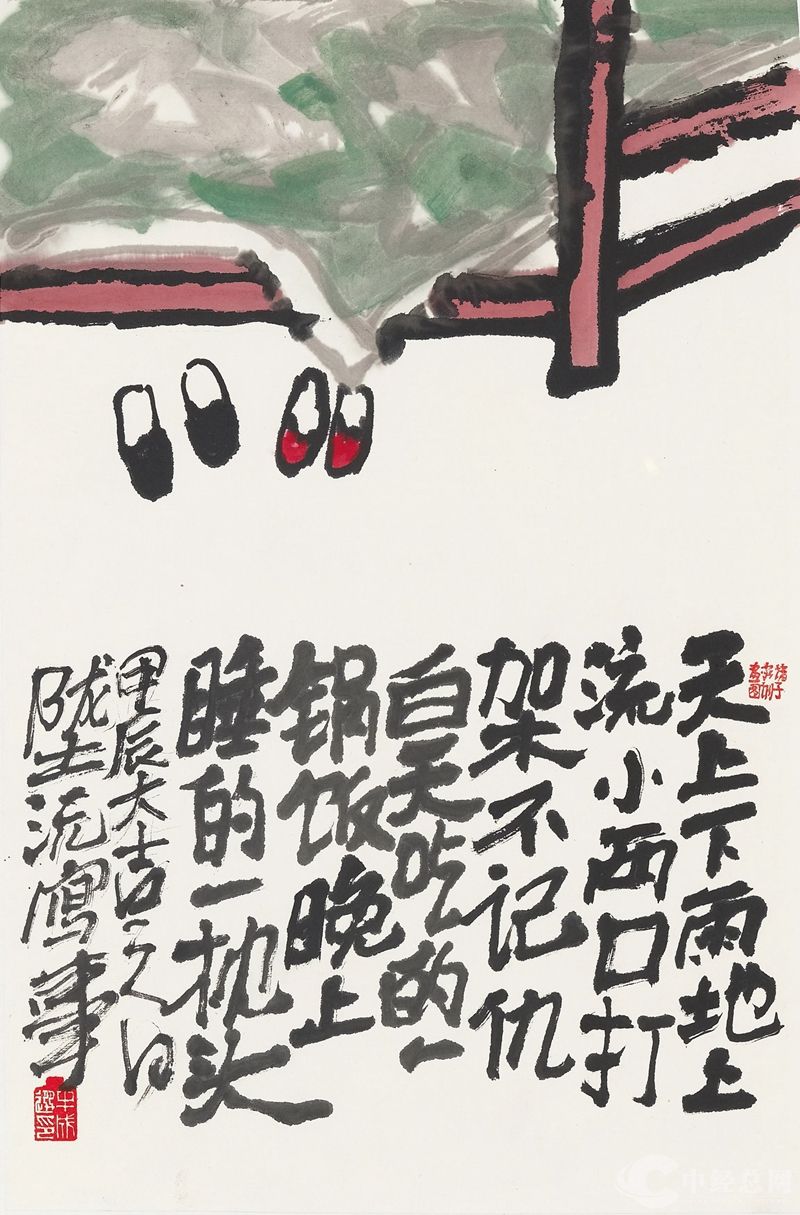 天上下雨地上
流小两口打
架不记仇
白天吃的一
锅饭晚上
睡的一枕头
甲辰大吉之日
陇土沅寫事
中经总网